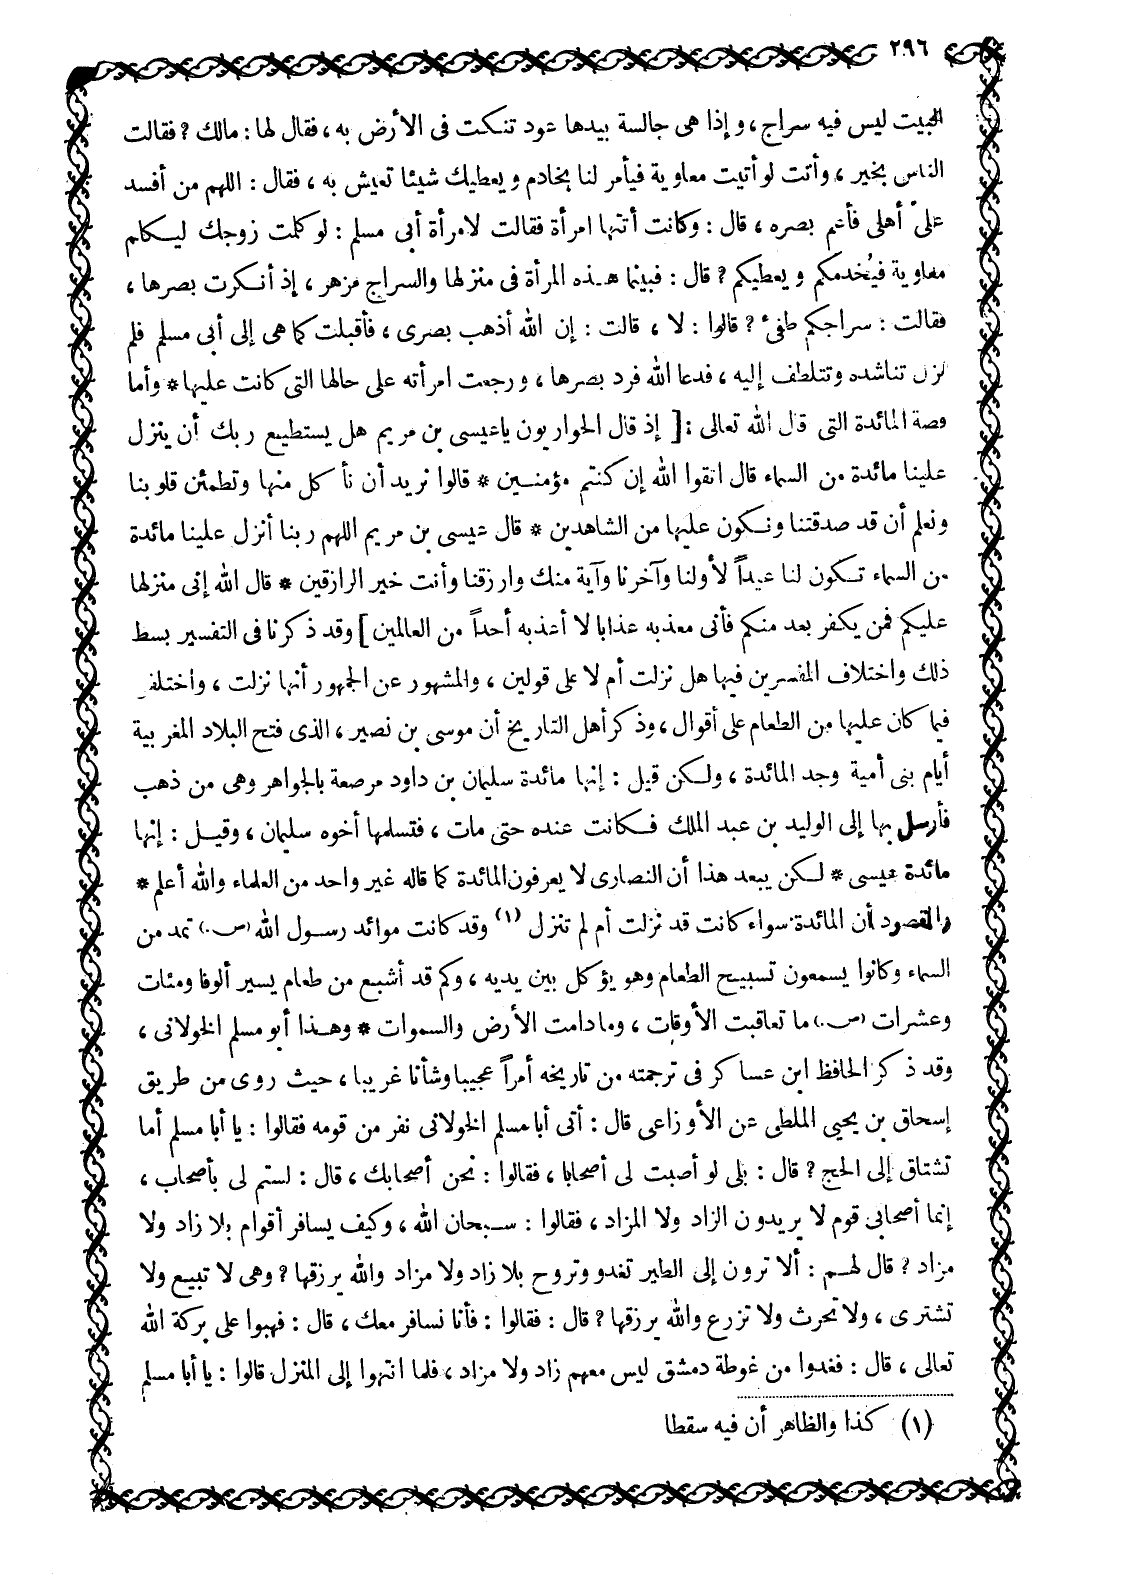 ٢٩٦
البيت ليس فيه سراج ، و إذا هى جالسة بيدها عود تنكت فى الأرض به ، فقال لها : مالك ? فقالت
الناس بخير ، وأنت لو أتيت معاوية فيأمر لنا بخادم و يعطيك شيئا تعيش به ، فقال : اللهم من أفسد
علىّ أهلى فأعم بصره ، قال : وكانت أتتها امرأة فقالت لامرأة أبى مسلم : لو كلمت زوجك ليكلم
معاوية فيُخدمكم و يعطيكم ? قال : فبينما هذه المرأة فى منزلها والسراج مزهر ، إذ أنكرت بصرها ،
فقالت : سراجكم طفىء ? قالوا : لا ، قالت : إن الله أذهب بصرى ، فأقبلت كما هى إلى أبى مسلم فلم
تزل تناشده وتتلطف إليه ، فدعا الله فرد بصرها ، ورجعت امرأته على حالها التى كانت عليها * وأما
قصة المائدة التى قال الله تعالى : [ إذ قال الحواريون ياعيسى بن مريم هل يستطيع ربك أن ينزل
علينا مائدة من السماء قال اتقوا الله إن كنتم مؤمنين * قالوا نريد أن نأكل منها وتطمئن قلوبنا
ونعلم أن قد صدقتنا ونكون عليها من الشاهدين * قال عيسى بن مريم اللهم ربنا أنزل علينا مائدة
من السماء تكون لنا عيداً لأولنا وآخرنا وآية منك وارزقنا وأنت خير الرازقين * قال الله إنى منزلها
عليكم فمن يكفر بعد منكم فأنى معذبه عذابا لا أعذبه أحداً من العالمين ] وقد ذكرنا فى التفسير بسط
ذلك واختلاف المفسرين فيها هل نزلت أم لا على قولين ، والمشهور عن الجمهور أنها نزلت ، واختلف
فيما كان عليها من الطعام على أقوال ، وذكر أهل التاريخ أن موسى بن نصير ، الذى فتح البلاد المغربية
أيام بنى أمية وجد المائدة ، ولكن قيل : إنها مائدة سليمان بن داود مرصعة بالجواهر وهى من ذهب
فأرسل بها إلى الوليد بن عبد الملك فكانت عنده حتى مات ، فتسلمها أخوه سليمان ، وقيل : إنها
مائدة عيسى * لكن يبعد هذا أن النصارى لا يعرفون المائدة كما قاله غير واحد من العلماء والله أعلم *
والمقصود أن المائدة سواء كانت قد نزلت أم لم تنزل (١) وقد كانت موائد رسول الله (ص) تمد من
السماء وكانوا يسمعون تسبيح الطعام وهو يؤكل بين يديه ، وكم قد أشبع من طعام يسير ألوفا ومئات
وعشرات (ص) ما تعاقبت الأوقات ، ومادامت الأرض والسموات * وهذا أبو مسلم الخولانى ،
وقد ذكر الحافظ ابن عساكر فى ترجمته من تاريخه أمراً عجيبا وشأنا غريبا ، حيث روى من طريق
إسحاق بن يحيى الملطى عن الأوزاعى قال : أتى أبا مسلم الخولانى نفر من قومه فقالوا : يا أبا مسلم أما
تشتاق إلى الحج ? قال : بلى لو أصبت لى أصحابا ، فقالوا : نحن أصحابك ، قال : لستم لى بأصحاب ،
إنما أصحابى قوم لا يريدون الزاد ولا المزاد ، فقالوا : سبحان الله ، وكيف يسافر أقوام بلا زاد ولا
مزاد ? قال لهم : ألا ترون إلى الطير تغدو وتروح بلا زاد ولا مزاد والله يرزقها ? وهى لا تبيع ولا
تشترى ، ولا تحرث ولا تزرع والله يرزقها ? قال : فقالوا : فأنا نسافر معك ، قال : فهبوا على بركة الله
تعالى ، قال : فغدوا من غوطة دمشق ليس معهم زاد ولا مزاد ، فلما انتهوا إلى المنزل قالوا : يا أبا مسلم
(١) كذا والظاهر أن فيه سقطا